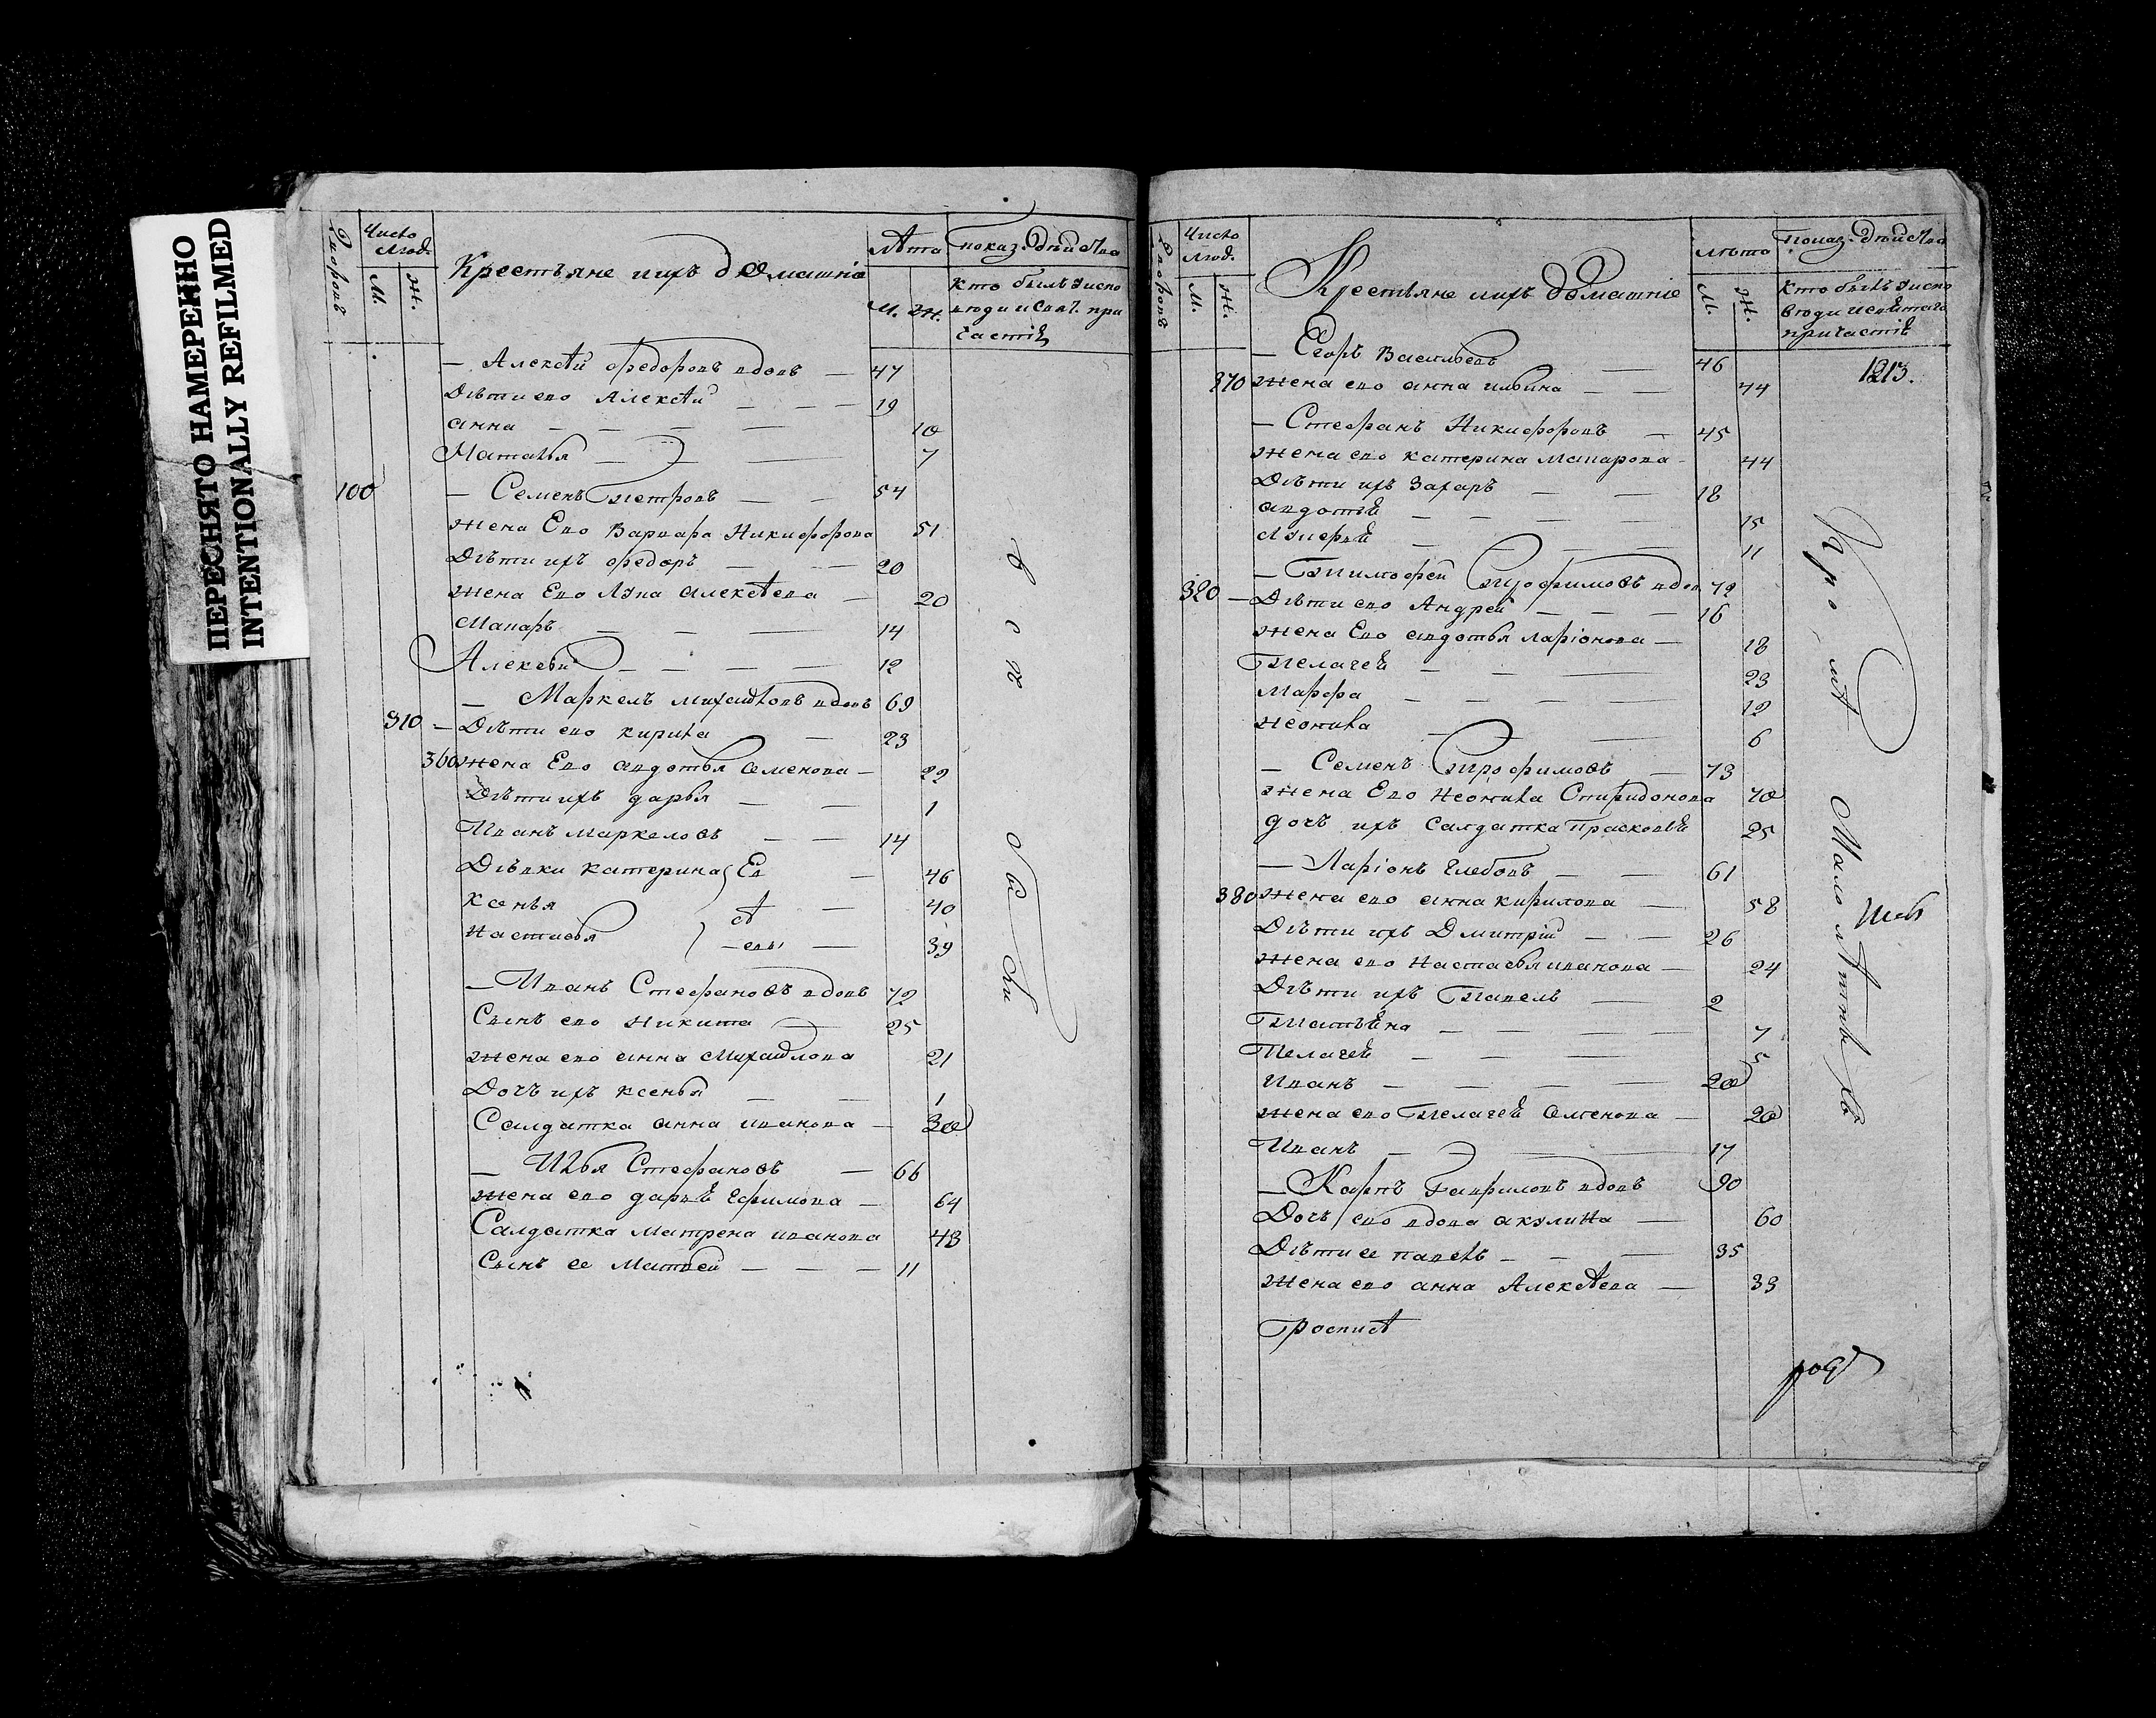 ПЕРЕСНЯТО НАМЕРЕННО
INTENTIONALLY REFILMED
Число
Люд.
М.
Ж.
Крестьяне и ихъ домашніе
Лѣта
М. Ж.
показ. дѣйства
кто былъ у испо
вѣди и свят. при
частіѣ
— Алексѣй Федоровъ вдовъ — 47
Дѣти ево Алексѣй — — — 19
Анна — — — — 10
Наталья — — — 7
100 — Семенъ Петровъ — — 54
жена Ево Варвара Никифорова 51
Дѣти ихъ Федоръ — — 20
жена Ево Алексѣева — 20
Макаръ — — — 14
Алексѣй — — — — 12
— Маркелъ Михайловъ вдовъ 69
310 — Дѣти ево Кирила — 23
360 жена Ево Авдотья Семенова — 22
Дѣти ихъ Дарья — — 1
Иванъ Маркеловъ — — 14
Дѣвки Катерина Ев — 46
Ксенья сѣ — 40
Настасья — евы — 39
— Иванъ Стефановъ вдовъ 72
Сынъ ево Никита — 25
жена ево Анна Михайлова 21
Дочь ихъ Ксенья — — 1
Салдатка Анна Иванова — 30
— Илья Стефановъ — 66
жена ево Дарья Ефимова — 64
Салдатка Матрена Иванова 43
Сынъ ее Матвей — — — 11
всѣ были
Число
Люд.
М.
Ж.
Крестьяне и ихъ домашніе
лѣта
М.
Ж.
показ. дѣйства
кто былъ у испо
вѣди и святаго
причастіѣ
— Егоръ Васильевъ — 46
1213.
370 жена ево Анна Ильина — — 44
— Стефанъ Никифоровъ — 45
жена ево Катерина Макарова — 44
Дѣти ихъ Захаръ — — 18
Авдотьѣ — — — — 15
— — — 11
— Тимофей Трофимовъ вдов 72
320 — Дѣти ево Андрей — — — 16
жена Ево Авдотья Ларіонова — 18
Пелагеѣ — — — 23
Марфа — — — — 12
Неонила — — — 6
— Семенъ Трофимовъ — 73
жена Ево Неонила Спиридонова 70
дочь ихъ Салдатка Прасковьѣ 25
— Ларіонъ Глебовъ — — 61
380 жена ево Анна Кирилова — 58
Дѣти ихъ Дмитрій — — 26
жена ево Настасья Иванова — 24
Дѣти ихъ Павелъ — 2
Татьѣна — — — 7
Пелагеѣ — — — 5
Иванъ — — — — 20
жена ево Пелагеѣ Семенова — 20
Иванъ — — — — 17
— Карпъ Гавриловъ вдовъ 90
Дочь ево вдова Акулина — 60
Дѣти ее Павелъ — — — 35
жена ево Анна Алексѣева — 33
Кромѣ Малолѣтныхъ